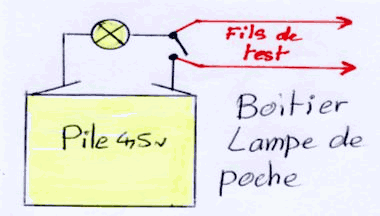 Fils de
test
Pile 4,5v
Boitier
Lampe de
poche